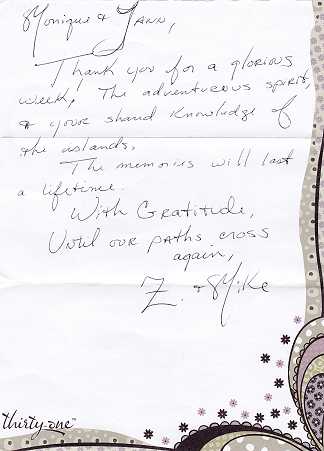 Monique & Yann,
Thank you for a glorious
week! The adventurous spirit,
& your shared knowledge of
the islands.
The memories will last
a lifetime.
With Gratitude,
Until our paths cross
again,
Z. & Mike
thirty-one™